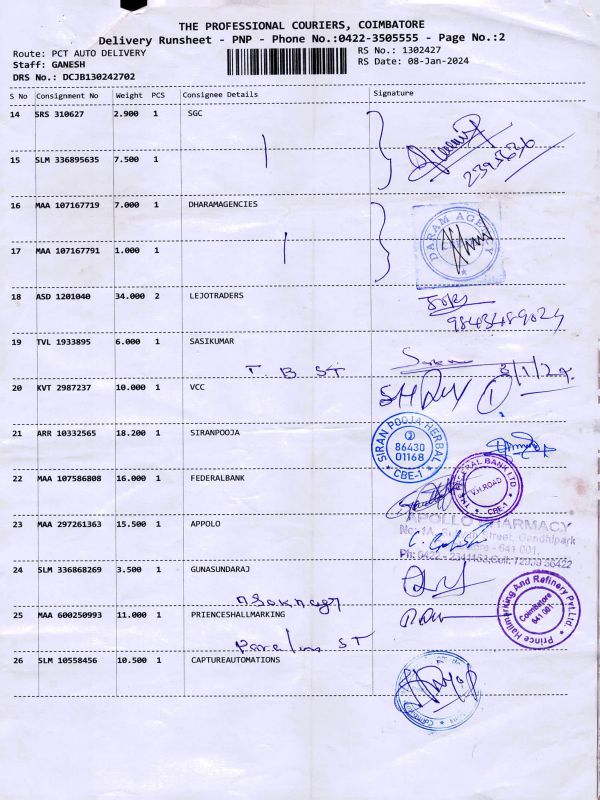 THE PROFESSIONAL COURIERS, COIMBATORE
Delivery Runsheet - PNP - Phone No.:0422-3505555 - Page No.:2
Route: PCT AUTO DELIVERY RS No.: 1302427
Staff: GANESH RS Date: 08-Jan-2024
DRS No.: DCJB130242702
S No Consignment No Weight PCS Consignee Details Signature
14 SRS 310627 2.900 1 SGC
15 SLM 336895635 7.500 1
16 MAA 107167719 7.000 1 DHARAMAGENCIES
DARAM AGENCY
17 MAA 107167791 1.000 1
18 ASD 1201040 34.000 2 LEJOTRADERS
9843489024
19 TVL 1933895 6.000 1 SASIKUMAR
T B ST
20 KVT 2987237 10.000 1 VCC
21 ARR 10332565 18.200 1 SIRANPOOJA
SIRAN POOJA HERBAL
86430
01168
CBE-1
22 MAA 107586808 16.000 1 FEDERALBANK
THE FEDERAL BANK LTD
V.H.ROAD
CBE-1
23 MAA 297261363 15.500 1 APPOLO
APOLLO PHARMACY
Street, Gandhipark
641 001.
24 SLM 336868269 3.500 1 GUNASUNDARAJ
25 MAA 600250993 11.000 1 PRIENCESHALLMARKING
Prince Hallmarking And Refinery Pvt.Ltd.
Coimbatore
641 001
ST
26 SLM 10558456 10.500 1 CAPTUREAUTOMATIONS